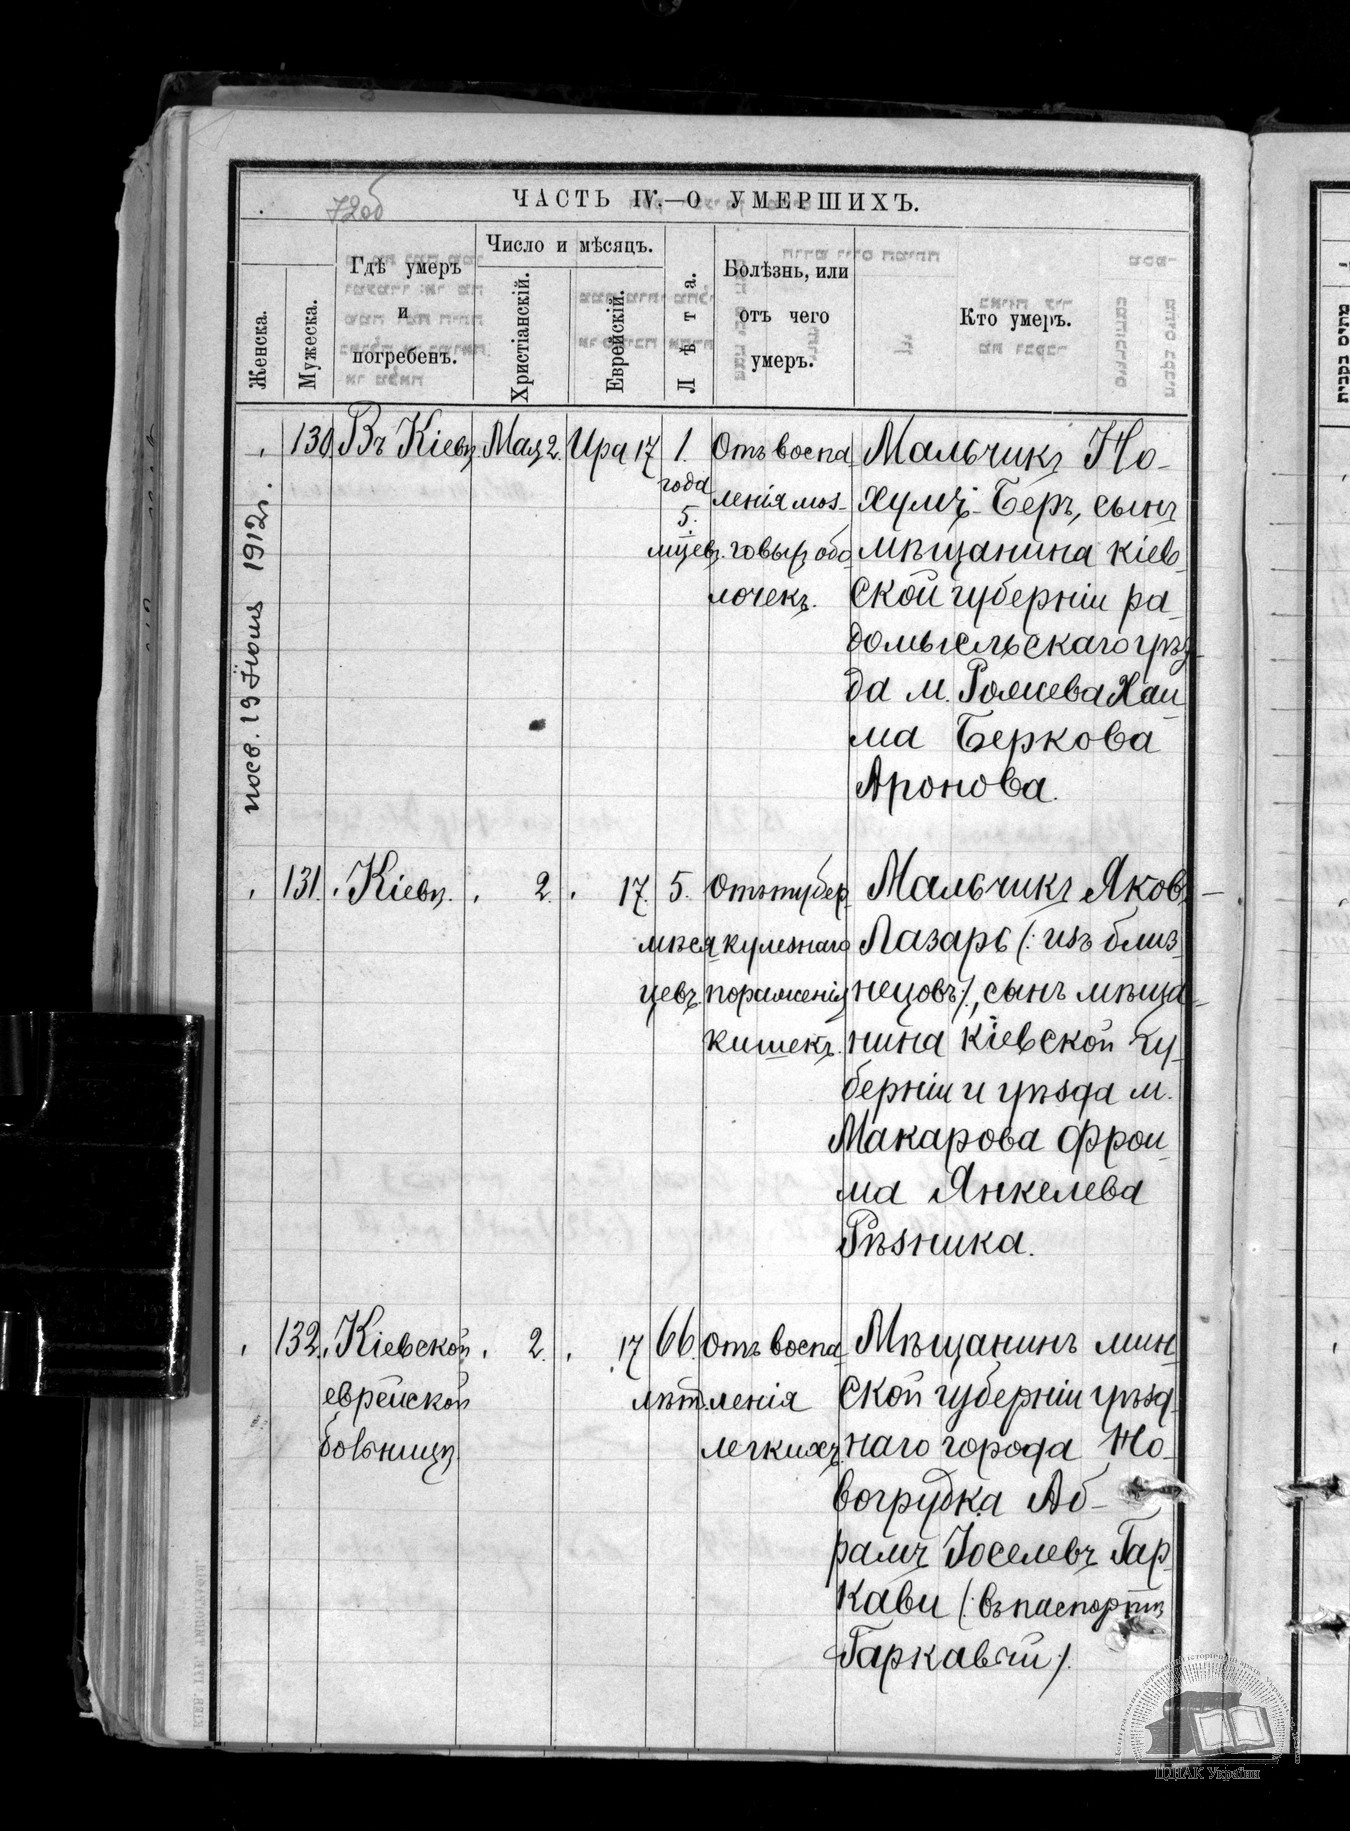 72об
ЧАСТЬ IV.—О УМЕРШИХЪ.
Женска.
Мужеска.
Гдѣ умеръ
и
погребенъ.
Число и мѣсяцъ.
Христіанскій.
Еврейскій.
Лѣта.
Болѣзнь, или
отъ чего
умеръ.
Кто умеръ.
посв. 19 Іюля 1912г.
130
Въ Кіевѣ
Мая 2.
Ира 17
1.
года
5.
мцевъ.
Отъ воспа
ленія моз-
говыхъ обо
лочекъ.
Мальчикъ Но-
хумъ-Беръ, сынъ
мѣщанина кіев-
ской губерніи ра
домысльскаго уѣз-
да м. Рожева Хаи
ма Беркова
Аронова.
131.
Кіевѣ.
2.
17.
5.
мѣся
цевъ
Отъ тубер
кулезнаго
пораженія
кишекъ.
Мальчикъ Яковъ-
Лазарь (: изъ близ-
нецовъ:), сынъ мѣща-
нина кіевской гу-
берніи и уѣзда м.
Макарова Фрои-
ма Янкелева
Рѣзника.
132.
Кіевской
еврейской
больницѣ
2.
17
66.
лѣт.
Отъ воспа
ленія
легкихъ.
Мѣщанинъ мин-
ской губерніи уѣзд-
наго города Но-
вогрудка Аб-
рамъ Іоселевъ Гар
кави (: въ паспортѣ
Гаркавый:).
ЦДІАК України